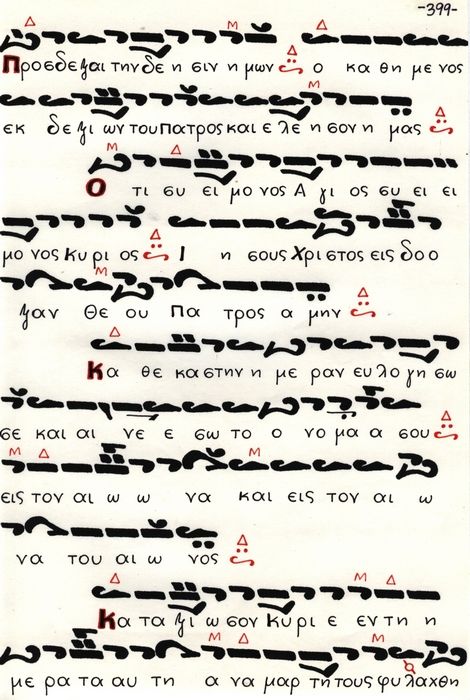 -399-
Προσδεξαι την δε η σιν η μων ο κα θη με νος
εκ δε ξι ων του Πατρος και ε λε η σον η μας
Ο τι συ ει μο νος Α γι ος συ ει ει
μο νος Κυ ρι ος Ι η σους Χρι στος εις δο ο
ξαν Θε ου Πα τρος α μην
Κα θε κα στην η με ραν ευ λο γη σω
σε και αι νε ε σω το ο νο μα α σου
εις τον αι ω ω να και εις τον αι ω
να του αι ω νος
Κα τα ξι ω σον Κυ ρι ε εν τη η
με ρα τα αυ τη α να μαρ τη τους φυ λαχθη